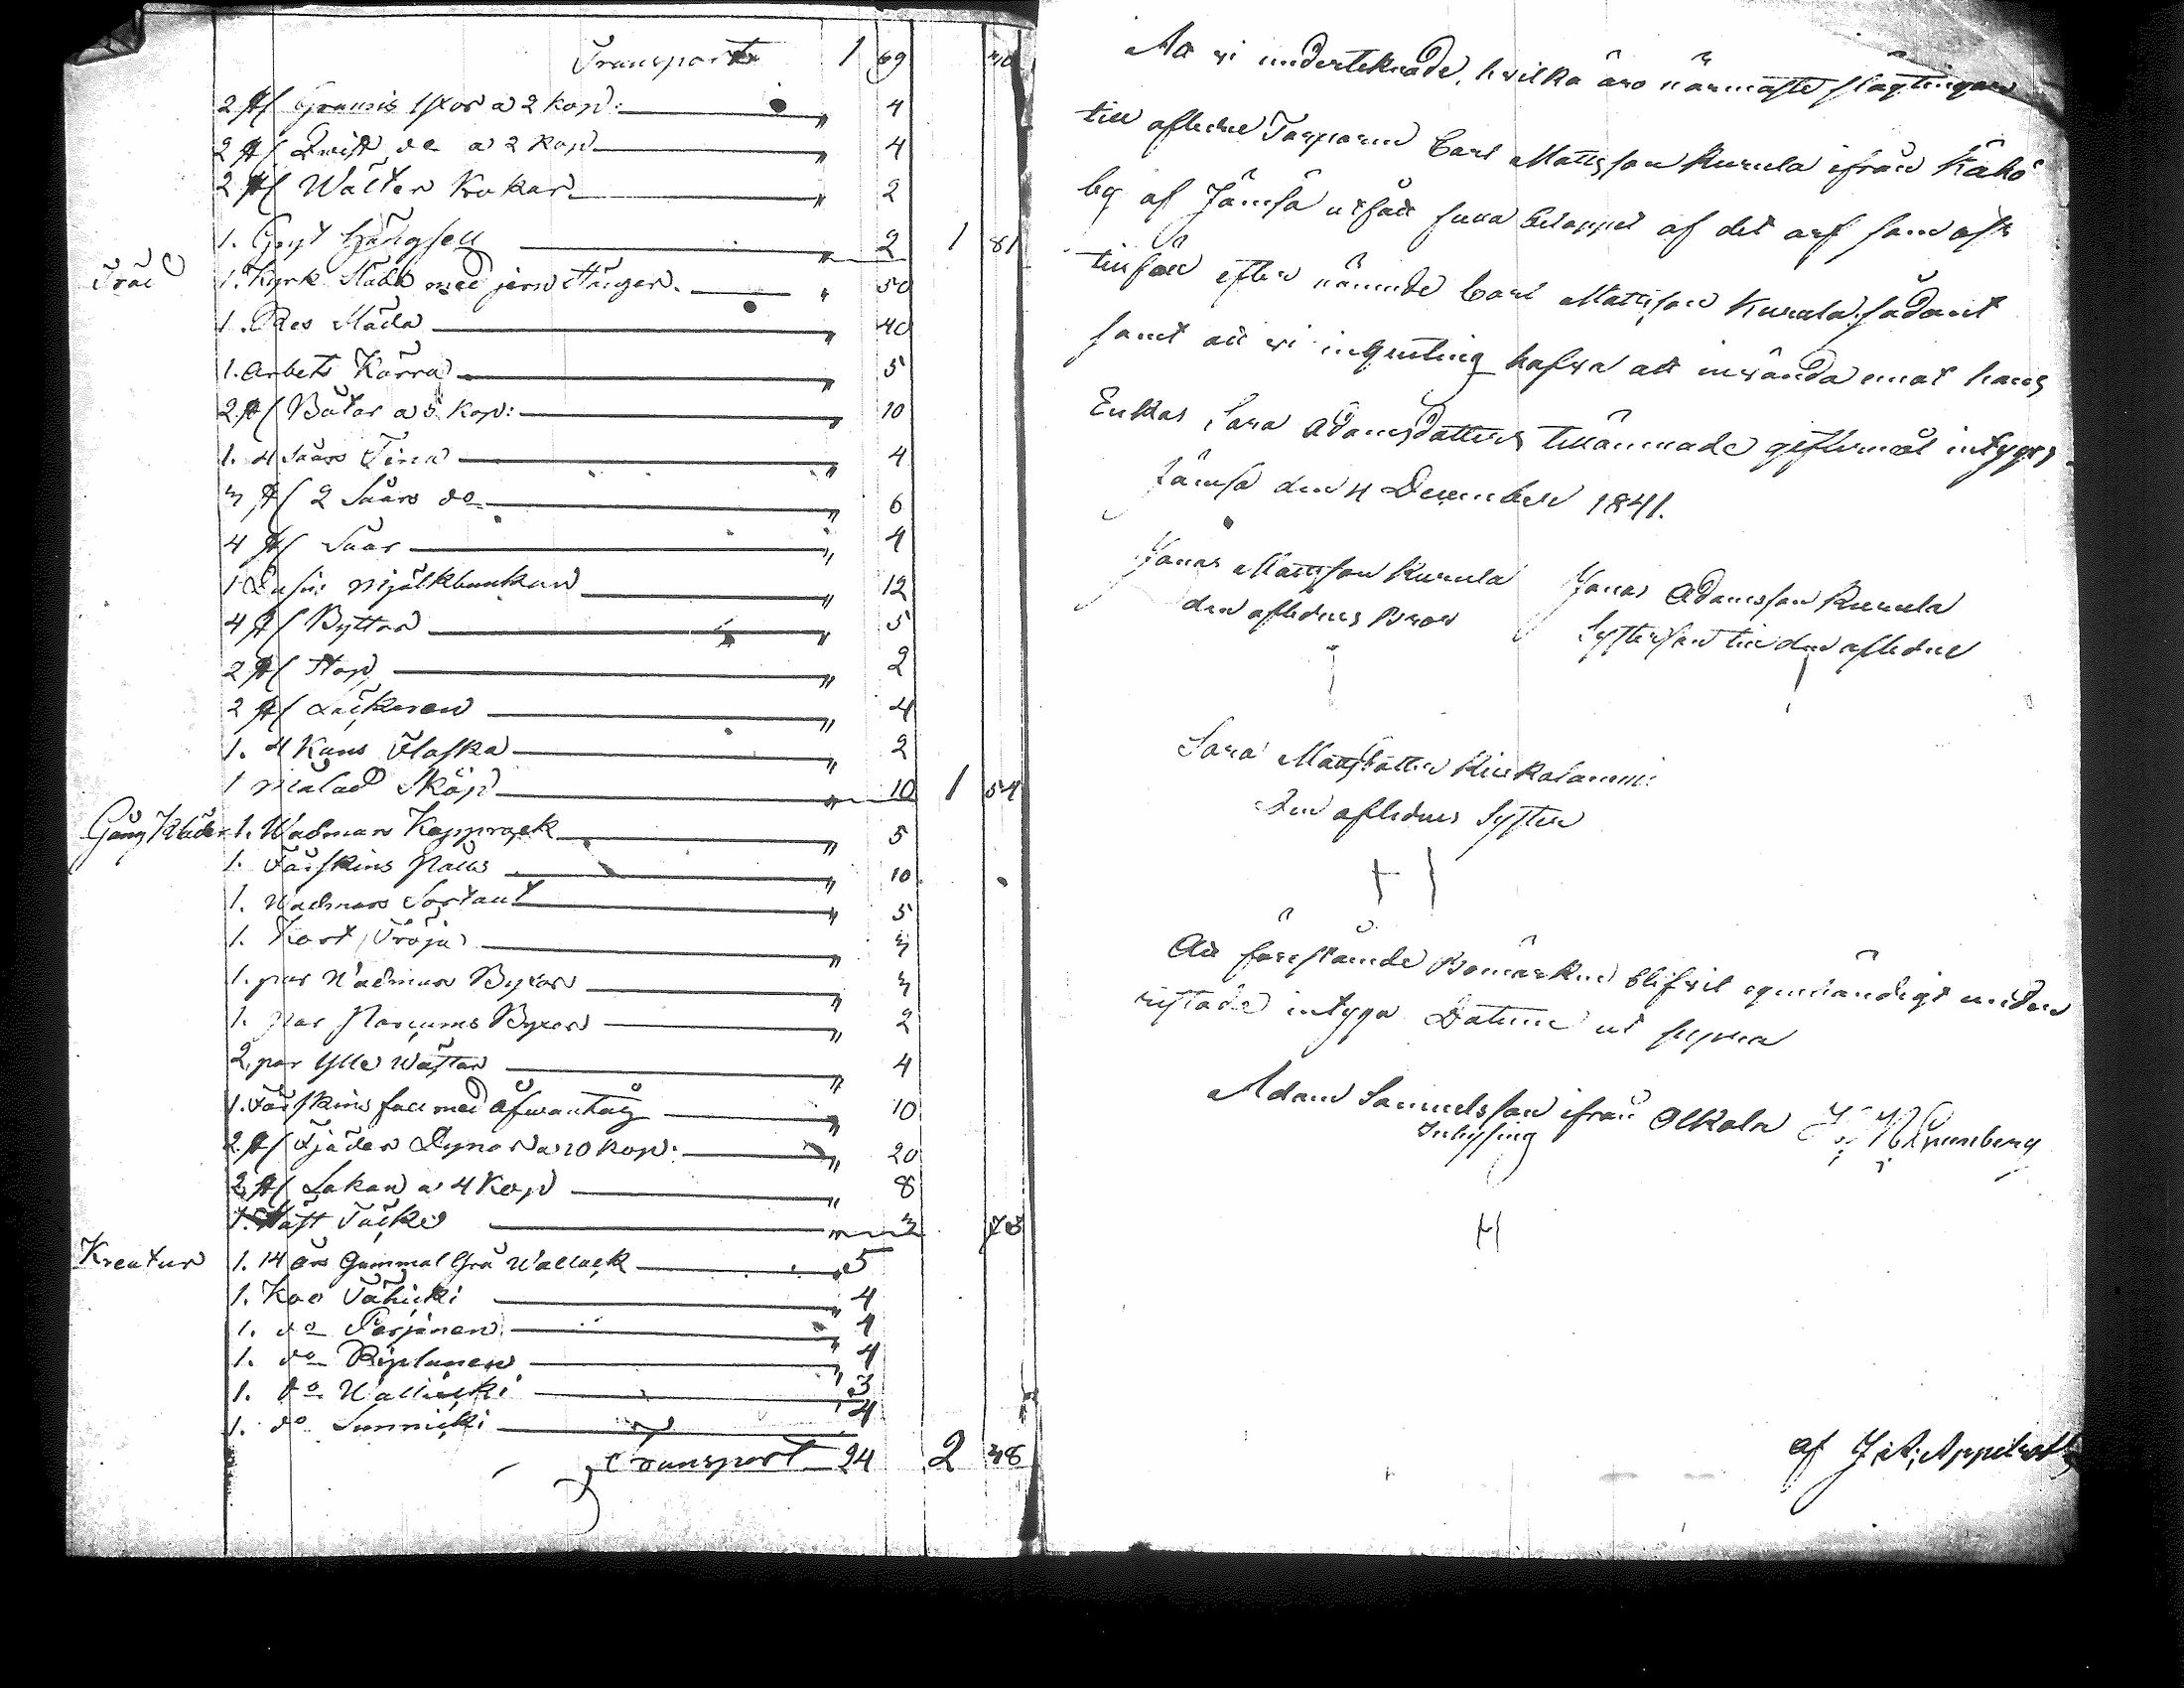 Transport 1 69
2 st Grannis Yxor a 2 kop: " 4
2 st Qvist do a 2 kop " 4
2 st Wälter Krokar " 2
1. Gryt Hängsell " 2 1 81
Träd 1. Kyrk Släde med jern " 50
1. Res Släda " 40
1. Arbets Kärra " 5
2 st Båtar a 5 kop: " 10
1. 4 Såars Tina " 4
3 st 2 Såars do " 6
4 st Såar " 4
1 Dusin mjölkbunkar " 12
4 st Byttor " 5
2 st Stop " 2
2 st " 4
1. 4 Kans Flaska " 2
1 målad Skåp " 10 1 54
Gång Kläder 1. Wadmans Kapprock " 5
1. Fårskins Päls " 10
1. Wadmans Sortaut " 5
1. Kort Tröja " 3
1. par Wadmans Byxor " 3
1. par Byxor " 2
2 par Ylle Wattar " 4
1. Fårskins fäll med Öfwantåg " 10
2 st Fjäder Dynor a 10 kop: " 20
2 st Lakan a 4 Kop " 8
1. Häst Täcke " 3 78
Kreatur 1. 14 års Gammal Grå Wallack " 5
1. Koo Tähicki " 4
1. do Terjönen " 4
1. do " 4
1. do " 3
1. do Sunnicki " 4
Transport 24 2 38
Att vi undertecknade, hvilka äro närmaste slägtingar
till aflidne Torparen Carl Mattsson Kurula ifrån Kähö
by af Jämsä utfått fulla beloppet af det arf som oss
tillfall efter nämnde Carl Mattsson Kurula, sådant
samt att vi ingenting hafva att invända emot hans
Enkas Sara Adamsdotters tillämnade giftermål intygas
Jämsä den 4 December 1841.
Jonas Mattsson Kurula Jonas Adamsson Kurula
den aflidnes Bror Systerson till den aflidne
Sara Mattsdotter
Den aflidnes Syster
Att förestående Bomärken blifvit egenhändigt under
ristade intyga Datum ut supra
Adam Samuelsson ifrån Alkala
Inhysing
af